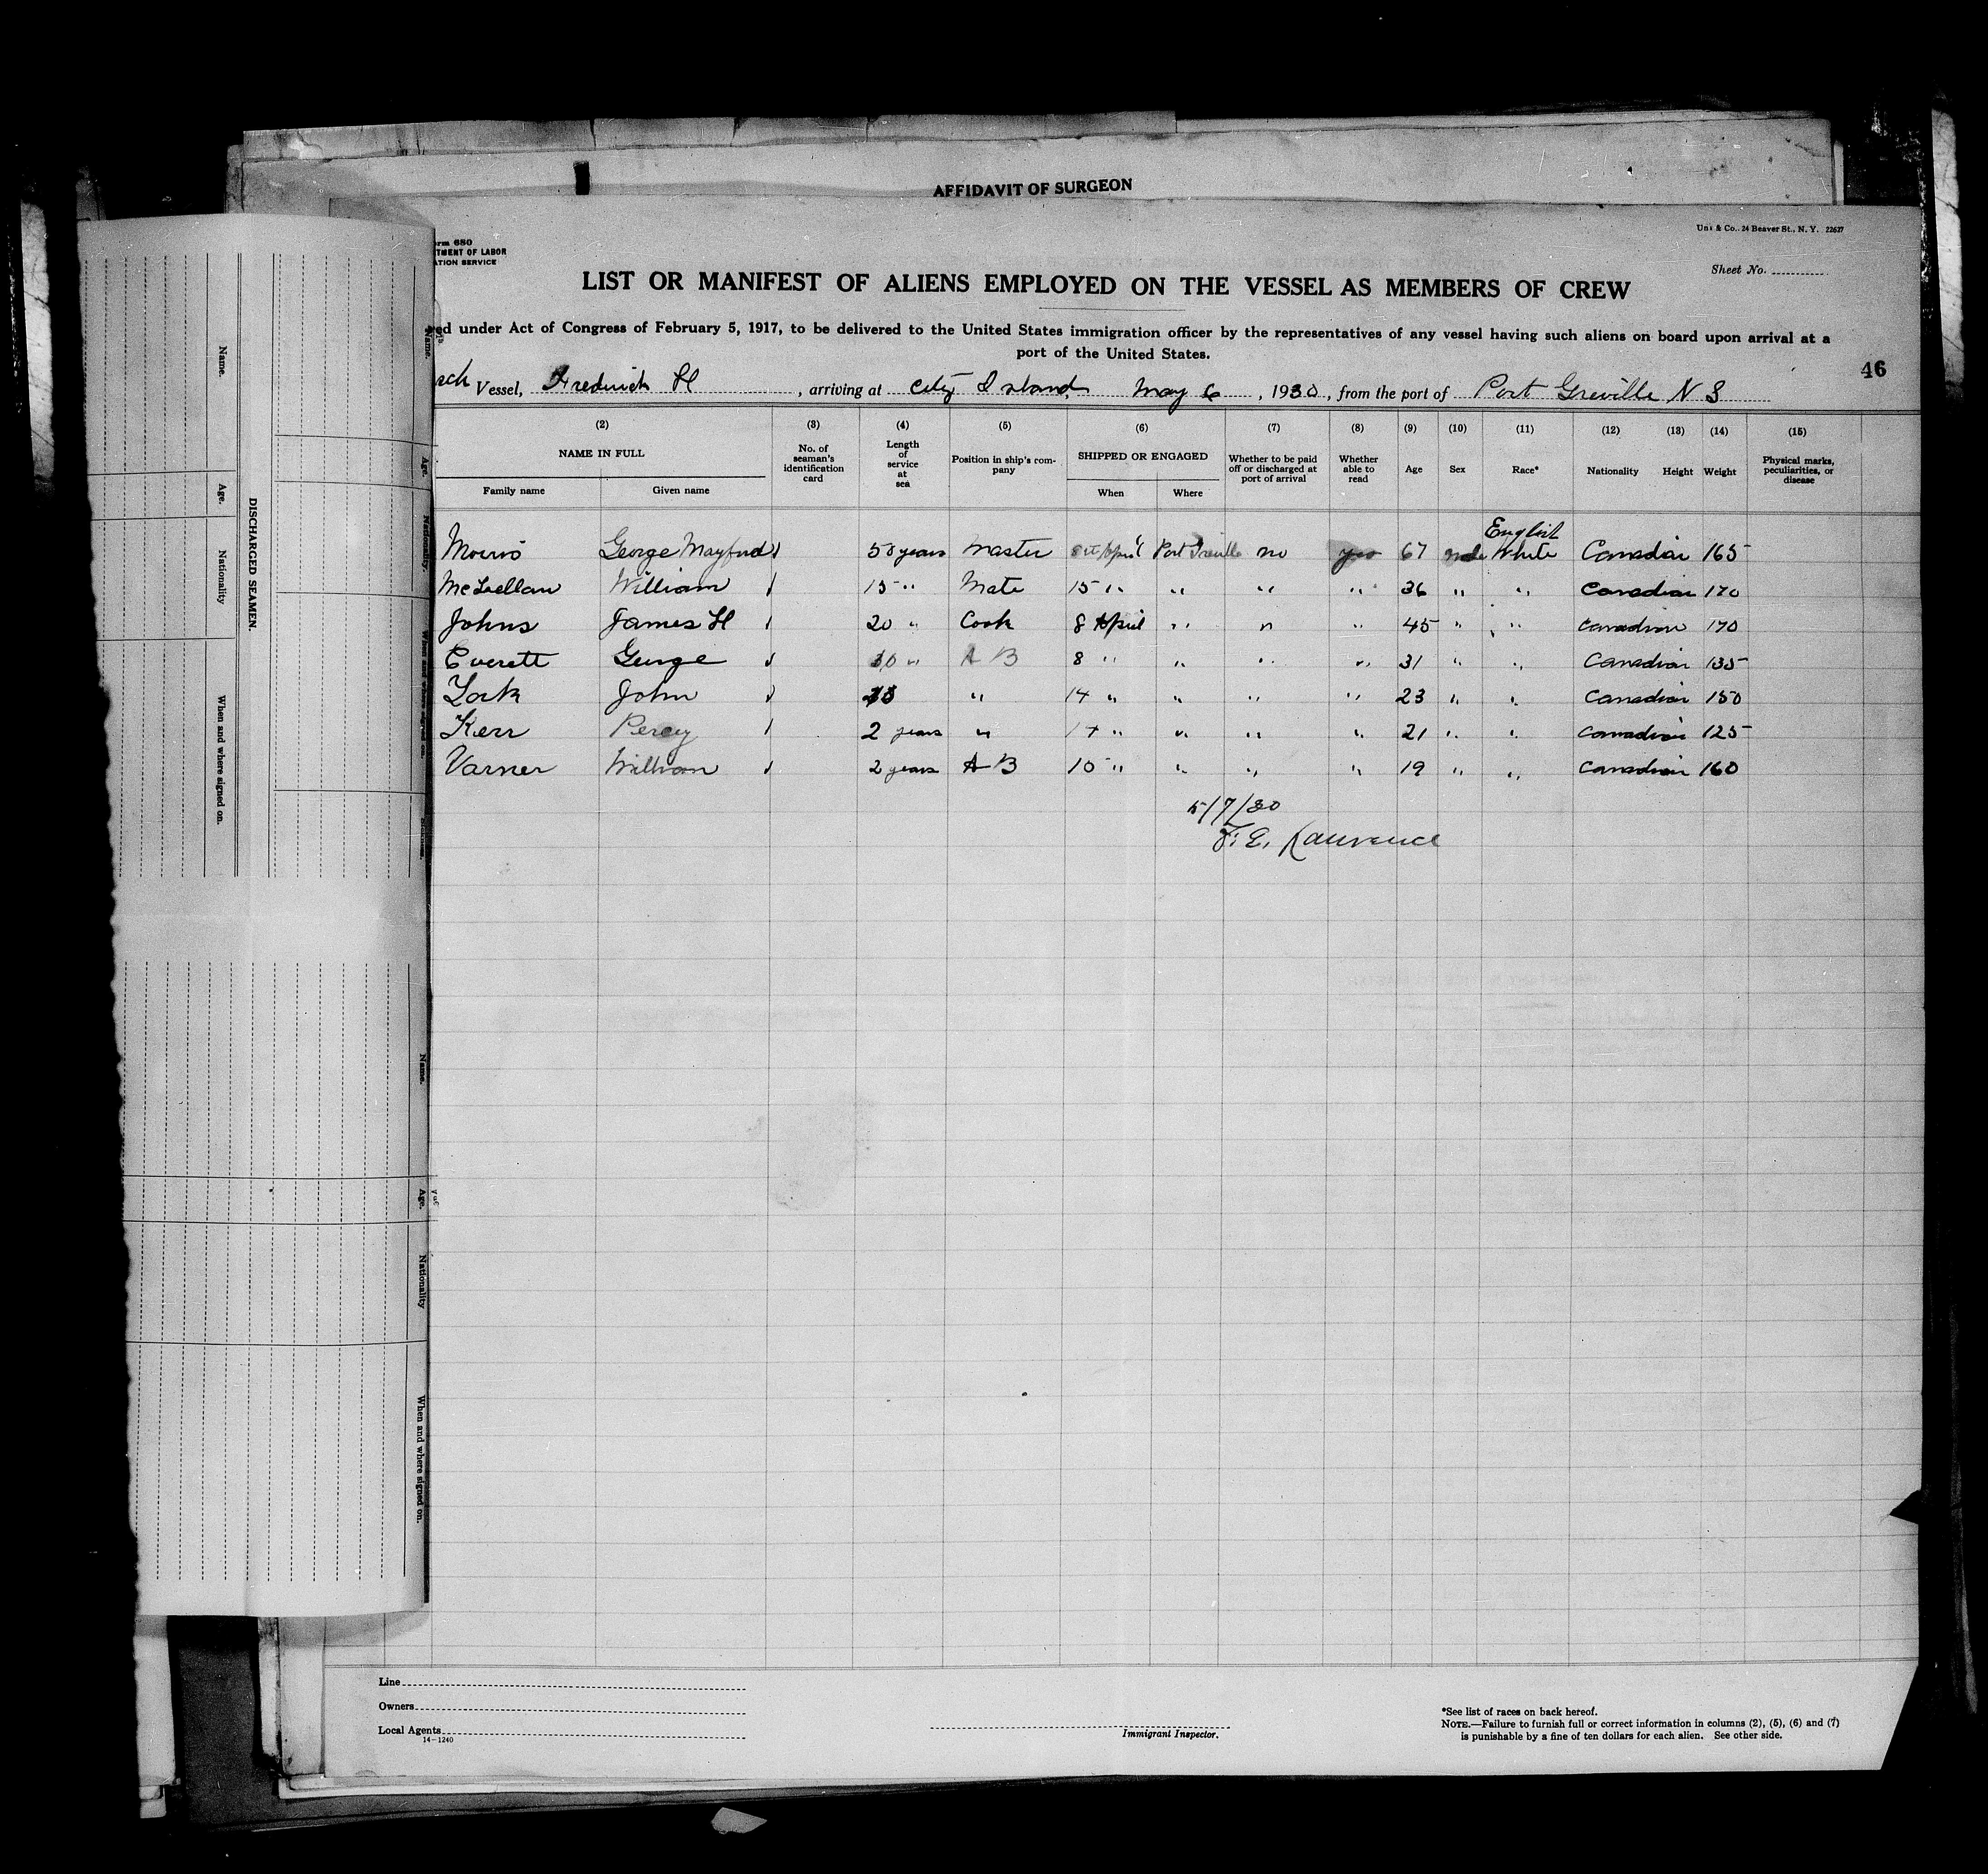 AFFIDAVIT OF SURGEON
rm 680
TMENT OF LABOR
ATION SERVICE
& Co., 24 Beaver St., N. Y. 22627
Sheet No.
LIST OR MANIFEST OF ALIENS EMPLOYED ON THE VESSEL AS MEMBERS OF CREW
ed under Act of Congress of February 5, 1917, to be delivered to the United States immigration officer by the representatives of any vessel having such aliens on board upon arrival at a
port of the United States.
46
Vessel, Frederick H, arriving at City Island, May 6, 1930, from the port of Port Greville N S
(2) (3) (4) (5) (6) (7) (8) (9) (10) (11) (12) (13) (14) (15)
NAME IN FULL No. of seaman's identification card Length of service at sea Position in ship's company SHIPPED OR ENGAGED Whether to be paid off or discharged at port of arrival Whether able to read Age Sex Race* Nationality Height Weight Physical marks, peculiarities, or disease
Family name Given name When Where
English
Morris George 50 years Master April Port Greville no yes 67 male White Canadian 165
McLellan William 15 " Mate 15 " " " " 36 " " Canadian 170
Johns James H 20 " Cook 8 April " " " 45 " " Canadian 170
Everett George 10 " A B 8 " " " " 31 " " Canadian 135
York John " 14 " " " " 23 " " Canadian 150
Kerr Percy 2 years " " " " " 21 " " Canadian 125
Varner William 2 years A B 15 " " " " 19 " " Canadian 160
5/7/30
F. E. Lawrence
Line
Owners
Local Agents
14-1240
Immigrant Inspector.
*See list of races on back hereof.
NOTE.—Failure to furnish full or correct information in columns (2), (5), (6) and (7)
is punishable by a fine of ten dollars for each alien. See other side.
DISCHARGED SEAMEN.
Name.
Age.
Nationality
When and where signed on.
Name.
Age.
Nationality
When and where signed on.